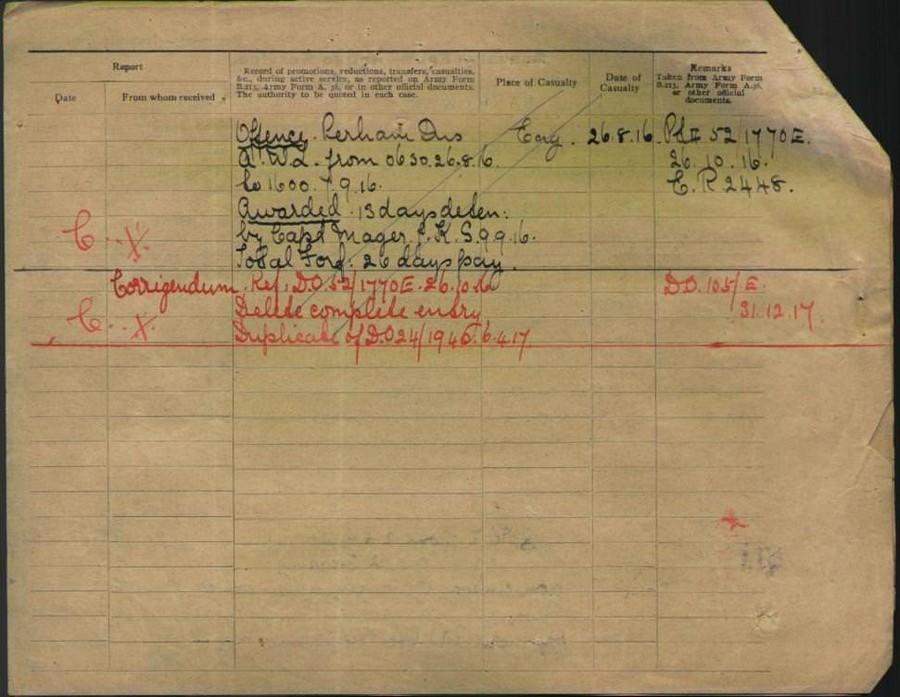 Report
Date
From whom received
Record of promotions, reductions, transfers, casualties,
&c., during active service, as reported on Army Form
B.213, Army Form A. 36, or in other official documents.
The authority to be quoted in each case.
Place of Casualty
Date of
Casualty
Remarks
Taken from Army Form
B.213, Army Form A.36,
or other official
documents.
Offence. Perham Dns Eng. 26.8.16. Pt II 52 1770E.
A.W.L. from 0630.26.8.16. 26.10.16.
to 1600.7.9.16. C.R.2448.
Awarded. 13 days deten:
C. X. by Capt Mager. J.K.S.9.9.16.
Total Forf: 26 days pay.
Corrigendum. Ref: D.O.52/1770E.26.10.16 D.O.105/E.
C. X. Delete complete entry 31.12.17.
Duplicate of D.O24/1946.6.4.17